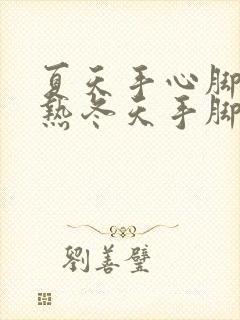 夏天手心脚
热冬天手脚
劉善璧